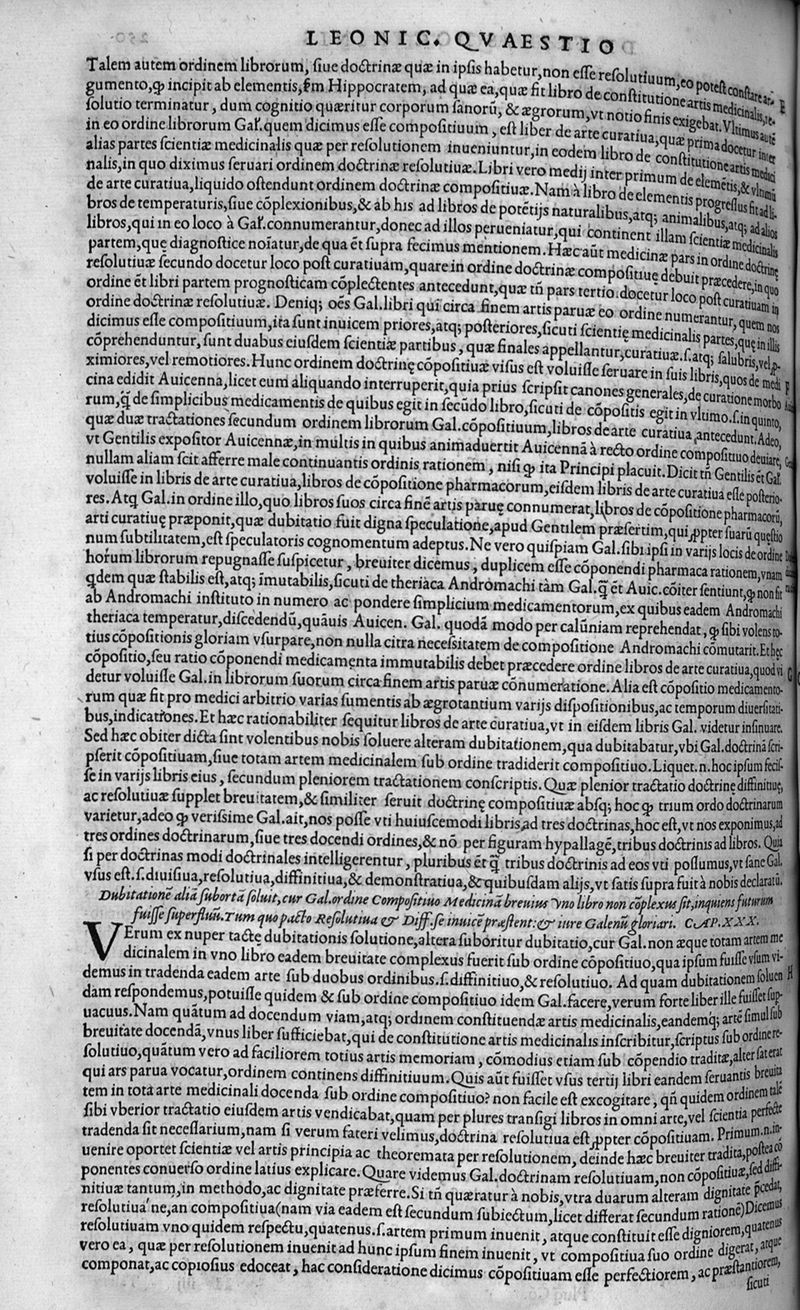 LEONIC. QVAESTIO
Talem autem ordinem librorum, siue doctrinæ quæ in ipsis habetur, non esse resolutiuum, eo potest constare ar-
gumento, ꝙ incipit ab elementis, ſm Hippocratem, ad quæ ea, quæ fit libro de constitutione artis medicinalis, re-
solutio terminatur, dum cognitio quæritur corporum sanorũ, & ægrorum, vt notio finis exigebat. Vltimus autẽ
in eo ordine librorum Gal. quem dicimus esse compositiuum, est liber de arte curatiua, quæ prima docetur inter
alias partes scientiæ medicinalis quæ per resolutionem inueniuntur, in eodem libro de constitutione artis medici
nalis, in quo diximus seruari ordinem doctrinæ resolutiuæ. Libri vero medij inter primum de elemẽtis, & vltimũ
de arte curatiua, liquido ostendunt ordinem doctrinæ compositiuæ. Nam à libro de elementis progressus fit ad li-
bros de temperaturis, siue cõplexionibus, & ab his ad libros de potẽtijs naturalibus, atq; animalibus, atq; ad alios
libros, qui in eo loco à Gal. connumerantur, donec ad illos perueniatur, qui continent illam scientiæ medicinalis
partem, quę diagnostice noĩatur, de qua ẽt supra fecimus mentionem. Hæc aũt medicinæ pars in ordine doctrinę
resolutiuæ secundo docetur loco post curatiuam, quare in ordine doctrinæ compositiuę debuit præcedere, in quo
ordine ẽt libri partem prognosticam cõplectentes antecedunt, quæ tñ pars tertio docetur loco post curatiuam in
ordine doctrinæ resolutiuæ. Deniq; oẽs Gal. libri qui circa finem artis paruæ eo ordine numerantur, quem nos
dicimus esse compositiuum, ita sunt inuicem priores, atq; posteriores, sicuti scientię medicinalis partes, quę in illis
cõprehenduntur, sunt duabus eiusdem scientiæ partibus, quæ finales appellantur, curatiuæ .s. atq; salubris, vel ꝓ-
ximiores, vel remotiores. Hunc ordinem doctrinę cõpositiuæ visus est voluisse seruare in suis libris, quos de medi
cina edidit Auicenna, licet eum aliquando interruperit, quia prius scripsit canones generales, de curatione morbo
rum, q̃ de simplicibus medicamentis de quibus egit in secũdo libro, sicuti de cõpositis egit in vltimo .s. in quinto,
quæ duæ tractationes secundum ordinem librorum Gal. cõpositiuum, libros de arte curatiua, antecedunt. Adeo,
vt Gentilis expositor Auicennæ, in multis in quibus animaduertit Auicennã à recto ordine compositiuo deuiare,
nullam aliam scit afferre male continuantis ordinis rationem, nisi ꝙ ita Principi placuit. Dicit tñ Gentilis ẽt Gal.
voluisse in libris de arte curatiua, libros de cõpositione pharmacorum, eisdem libris de arte curatiua esse posterio-
res. Atq̃ Gal. in ordine illo, quo libros suos circa finẽ artis paruę connumerat, libros de cõpositione pharmacorũ,
arti curatiuę præponit, quæ dubitatio fuit digna speculatione, apud Gentilem præsertim, qui ꝓpter suarũ quęstio
num subtilitatem, est speculatoris cognomentum adeptus. Ne vero quispiam Gal. sibi ipsi in varijs locis de ordine
horum librorum repugnasse suspicetur, breuiter dicemus, duplicem esse cõponendi pharmaca rationem, vnam
ꝗdem quæ stabilis est, atq; imutabilis, sicuti de theriaca Andromachi tàm Gal. q̃ ẽt Auic. cõiter sentiunt, ꝙ non fit
ab Andromachi instituto in numero ac pondere simplicium medicamentorum, ex quibus eadem Andromachi
theriaca temperatur, discedendũ, quãuis Auicen. Gal. quodã modo per calũniam reprehendat, ꝙ sibi volens to-
tius cõpositionis gloriam vsurpare, non nulla citra necessitatem de compositione Andromachi cõmutarit. Et hęc
cõpositio, seu ratio cõponendi medicamenta immutabilis debet præcedere ordine libros de arte curatiua, quod vi
detur voluisse Gal. in librorum suorum circa finem artis paruæ cõnumeratione. Alia est cõpositio medicamento-
rum quæ fit pro medici arbitrio varias sumentis ab ægrotantium varijs dispositionibus, ac temporum diuersitati-
bus, indicationes. Et hæc rationabiliter sequitur libros de arte curatiua, vt in eisdem libris Gal. videtur insinuare.
Sed hæc obiter dicta sint volentibus nobis soluere alteram dubitationem, qua dubitabatur, vbi Gal. doctrinã scri-
pserit cõpositiuam, siue totam artem medicinalem sub ordine tradiderit compositiuo. Liquet .n. hoc ipsum fecis-
se in varijs libris eius, secundum pleniorem tractationem conscriptis. Quæ plenior tractatio doctrinę diffinitiuę,
ac resolutiuæ supplet breuitatem, & similiter seruit doctrinę compositiuæ absq; hoc ꝙ trium ordo doctrinarum
varietur, adeo ꝙ verissime Gal. ait, nos posse vti huiuscemodi libris, ad tres doctrinas, hoc est, vt nos exponimus, ad
tres ordines doctrinarum, siue tres docendi ordines, & nõ per figuram hypallagẽ, tribus doctrinis ad libros. Quia
si per doctrinas modi doctrinales intelligerentur, pluribus ẽt q̃ tribus doctrinis ad eos vti possumus, vt sane Gal.
vsus est .s. diuisiua, resolutiua, diffinitiua, & demonstratiua, & quibusdam alijs, vt satis supra fuit à nobis declaratũ.
Dubitationẽ aliã subortã soluit, cur Gal. ordine Compositiuo Medicinã breuius vno libro non cõplexus sit, inquiens futurum
fuisse superfluũ. Tum quo pacto Resolutiua & Diff. se inuicẽ præstent: & iure Galenũ gloriari. CAP. XXX.
VErum ex nuper tactę dubitationis solutione, altera suboritur dubitatio, cur Gal. non æque totam artem me
dicinalem in vno libro eadem breuitate complexus fuerit sub ordine cõpositiuo, qua ipsum fuisse vsum vi-
demus in tradenda eadem arte sub duobus ordinibus .s. diffinitiuo, & resolutiuo. Ad quam dubitationem soluen
dam respondemus, potuisse quidem & sub ordine compositiuo idem Gal. facere, verum forte liber ille fuisset sup-
uacuus. Nam quãtum ad docendum viam, atq; ordinem constituendæ artis medicinalis, eandemq; artẽ simul sub
breuitate docendã, vnus liber sufficiebat, qui de constitutione artis medicinalis inscribitur, scriptus sub ordine re-
solutiuo, quãtum vero ad faciliorem totius artis memoriam, cõmodius etiam sub cõpendio traditæ, alter sat erat
qui ars parua vocatur, ordinem continens diffinitiuum. Quis aũt fuisset vsus tertij libri eandem seruantis breuita
tem in tota arte medicinali docenda sub ordine compositiuo? non facile est excogitare, qñ quidem ordinem talẽ
sibi vberior tractatio eiusdem artis vendicabat, quam per plures transigi libros in omni arte, vel scientia perfecte
tradenda fit necessarium, nam si verum fateri velimus, doctrina resolutiua est, ꝓpter cõpositiuam. Primum .n. in-
uenire oportet scientiæ vel artis principia ac theoremata per resolutionem, deinde hæc breuiter tradita, postea cõ
ponentes conuerso ordine latius explicare. Quare videmus Gal. doctrinam resolutiuam, non cõpositiuæ, sed diffi-
nitiuæ tantum, in methodo, ac dignitate præferre. Si tñ quæratur à nobis, vtra duarum alteram dignitate p̃cedat,
resolutiua ne, an compositiua (nam via eadem est secundum subiectum, licet differat secundum rationẽ) Dicemus
resolutiuam vno quidem respectu, quatenus .s. artem primum inuenit, atque constituit esse digniorem, quatenus
vero ea, quæ per resolutionem inuenit ad hunc ipsum finem inuenit, vt compositiua suo ordine digerat, atque
componat, ac copiosius edoceat, hac consideratione dicimus cõpositiuam esse perfectiorem, ac præstantiorem,
sicuti